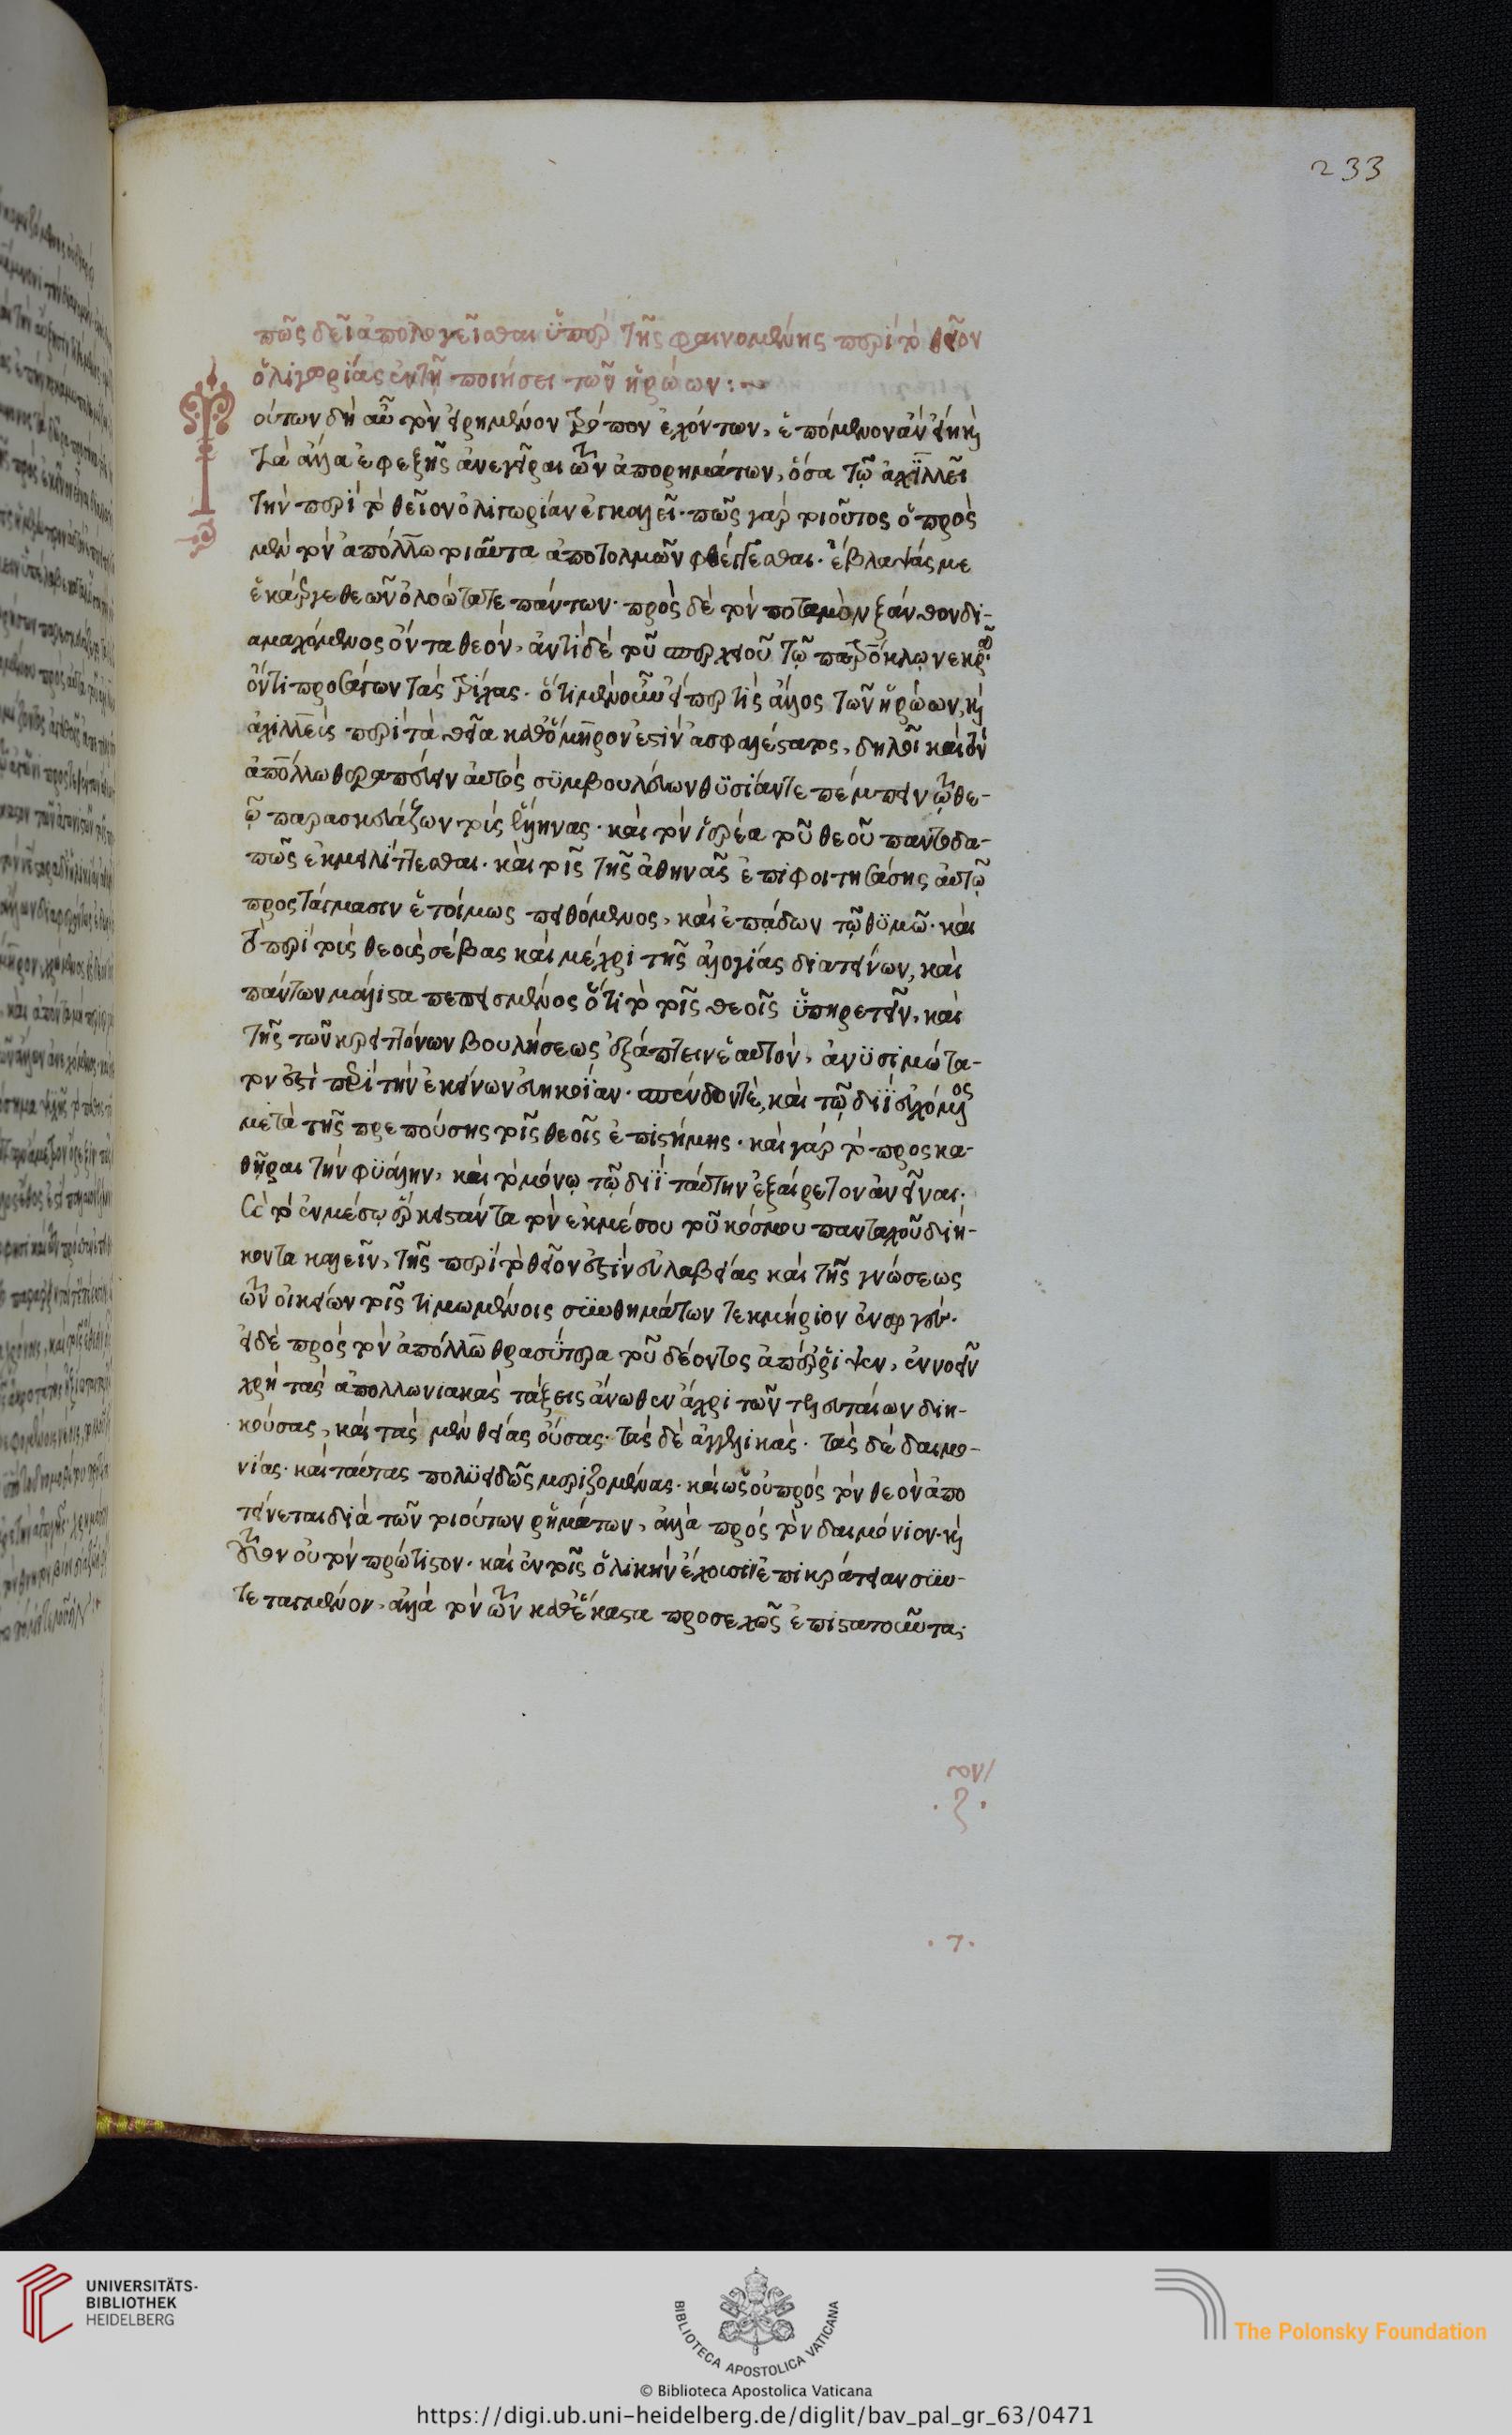 233
πῶς δεῖ ἀπολογεῖσθαι ὑπὲρ τῆς φαινομένης περὶ τὸ θεῖον
ὀλιγωρίας ἐν τῇ ποιήσει τῶν ἡρώων :~
Τούτων δὴ αὖ τὸν εἰρημένον τρόπον ἐχόντων, ἑπόμενον ἂν εἴη καὶ
τὰ ἄλλα ἐφεξῆς ἀνεγεῖραι τῶν ἀπορημάτων, ὅσα τῷ ἀχιλλεῖ
τὴν περὶ τὸ θεῖον ὀλιγωρίαν ἐγκαλεῖ· πῶς γὰρ τοιοῦτος ὁ πρὸς
μὲν τὸν ἀπόλλω τοιαῦτα ἀποτολμῶν φθέγγεσθαι· ἔβλαψάς με
ἑκάεργε θεῶν ὀλοώτατε πάντων· πρὸς δὲ τὸν ποταμὸν ξάνθον δι-
αμαχόμενος ὄντα θεόν· ἀντὶ δὲ τοῦ σπερχειοῦ τῷ πατρόκλῳ νεκρῷ
ὄντι προσάγων τὰς τρίχας· ὅτι μὲν οὖν εἴπερ τις ἄλλος τῶν ἡρώων, καὶ
ἀχιλλεὺς περὶ τὰ θεῖα καθ' ὅμηρον ἐστὶν ἀσφαλέστατος, δηλοῖ καὶ τὸν
ἀπόλλω θεραπεύειν αὐτὸς συμβουλεύων θυσίαν τε πέμπειν τῷ θε-
ῷ παρασκευάζων τοὺς ἕλληνας· καὶ τὸν ἱερέα τοῦ θεοῦ παντοδα-
πῶς ἐκμειλίττεσθαι· καὶ τοῖς τῆς ἀθηνᾶς ἐπιφοιτησάσης αὐτῷ
προστάγμασιν ἑτοίμως πειθόμενος, καὶ ἐπᾴδων τῷ θυμῷ· καὶ
τὸ περὶ τοὺς θεοὺς σέβας καὶ μέχρι τῆς ἀλογίας διατείνων, καὶ
πάντων μάλιστα πεπεισμένος ὅτι τὸ τοῖς θεοῖς ὑπηρετεῖν, καὶ
τῆς τῶν κρειττόνων βουλήσεως ἐξάπτειν ἑαυτόν, ἀνυσιμώτα-
τον ἐστὶ περὶ τὴν ἐκείνων εὐηκοΐαν· σπένδοντέ, καὶ τῷ διῒ εὐχόμενος
μετὰ τῆς πρεπούσης τοῖς θεοῖς ἐπιστήμης· καὶ γὰρ τὸ προσκα-
θῆραι τὴν φυάλην, καὶ τὸ μόνῳ τῷ διῒ ταύτην ἐξαίρετον ἀνεῖναι·
καὶ τὸ ἐν μέσῳ ἕρκει στάντα τὸν ἐκ μέσου τοῦ κόσμου πανταχοῦ διή-
κοντα καλεῖν, τῆς περὶ τὸ θεῖον ἐστὶν εὐλαβείας καὶ τῆς γνώσεως
τῶν οἰκείων τοῖς τιμωμένοις συνθημάτων τεκμήριον ἐναργές·
εἰ δὲ πρὸς τὸν ἀπόλλω θρασύτερα τοῦ δέοντος ἀπέρριψεν, ἐννοεῖν
χρὴ τὰς ἀπολλωνιακὰς τάξεις ἄνωθεν ἄχρι τῶν τελευταίων διη-
κούσας, καὶ τὰς μὲν θείας οὔσας· τὰς δὲ ἀγγελικάς· τὰς δὲ δαιμο-
νίας· καὶ ταύτας πολυειδῶς μεριζομένας· καὶ ὡς οὐ πρὸς τὸν θεὸν ἀπο
τείνεται διὰ τῶν τοιούτων ῥημάτων, ἀλλὰ πρὸς τὸν δαιμόνιον· καὶ
τοῦτον οὐ τὸν πρώτιστον· καὶ ἐν τοῖς ὁλικὴν ἔχουσιν ἐπικράτειαν συν-
τεταγμένον, ἀλλὰ τὸν τῶν καθέκαστα προσεχῶς ἐπιστατοῦντα;
UNIVERSITÄTS-
BIBLIOTHEK
HEIDELBERG
BIBLIOTECA APOSTOLICA VATICANA
The Polonsky Foundation
© Biblioteca Apostolica Vaticana
https://digi.ub.uni-heidelberg.de/diglit/bav_pal_gr_63/0471